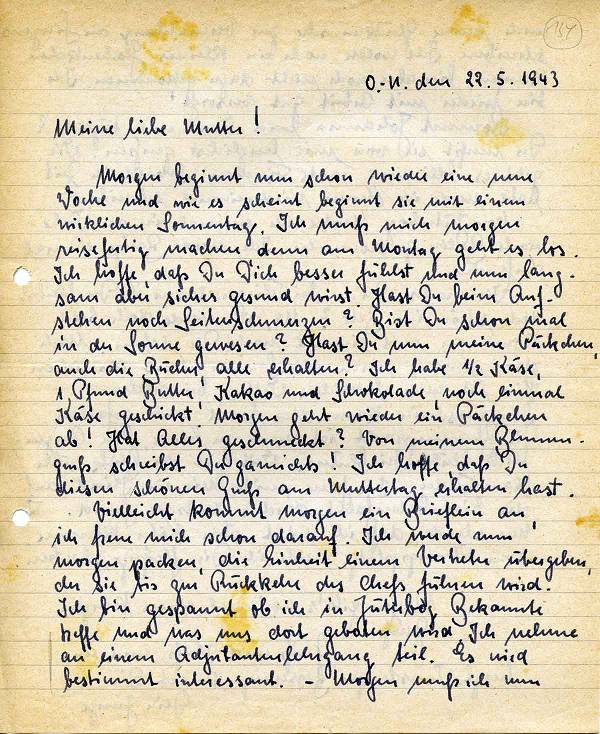 157
O.-U. den 22.5.1943
Meine liebe Mutter!
Morgen beginnt nun schon wieder eine neue
Woche und wie es scheint beginnt sie mit einem
wirklichen Sonnentag. Ich muß mich morgen
reisefertig machen denn am Montag geht es los.
Ich hoffe, daß Du Dich besser fühlst und nun lang-
sam aber sicher gesund wirst. Hast Du beim Auf-
stehen noch Seitenschmerzen? Bist Du schon mal
in der Sonne gewesen? Hast Du nun meine Päckchen,
auch die Bücher, alle erhalten? Ich habe 1/2 Käse,
1 Pfund Butter, Kakao und Schokolade, noch einmal
Käse geschickt! Morgen geht wieder ein Päckchen
ab! Hat Alles geschmeckt? Von meinem Blumen-
gruß schreibst Du garnichts! Ich hoffe, daß Du
diesen schönen Gruß am Muttertag erhalten hast.
Vielleicht kommt morgen ein Brieflein an,
ich freue mich schon darauf. Ich werde nun
morgen packen, die Einheit einem Vertreter übergeben,
der sie bis zur Rückkehr des Chefs führen wird.
Ich bin gespannt ob ich in Jüterbog Bekannte
treffe und was uns dort geboten wird. Ich nehme
an einem Adjutantenlehrgang teil. Es wird
bestimmt interessant. – Morgen muß ich nun